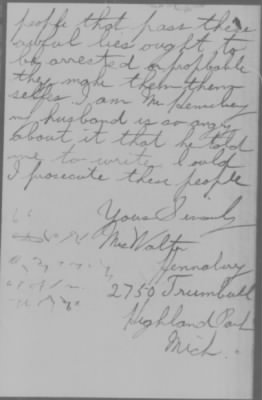 people that pass these
awful lies ought to
be arrested or probable
they make them them
selfes I am Mrs
my husband is so angry
about it that he told
me to write. Could
I prosecute these people
Yours Sincerely
Mrs Walter
Hennabery
2750 Trumbull
Highland Park
Mich.